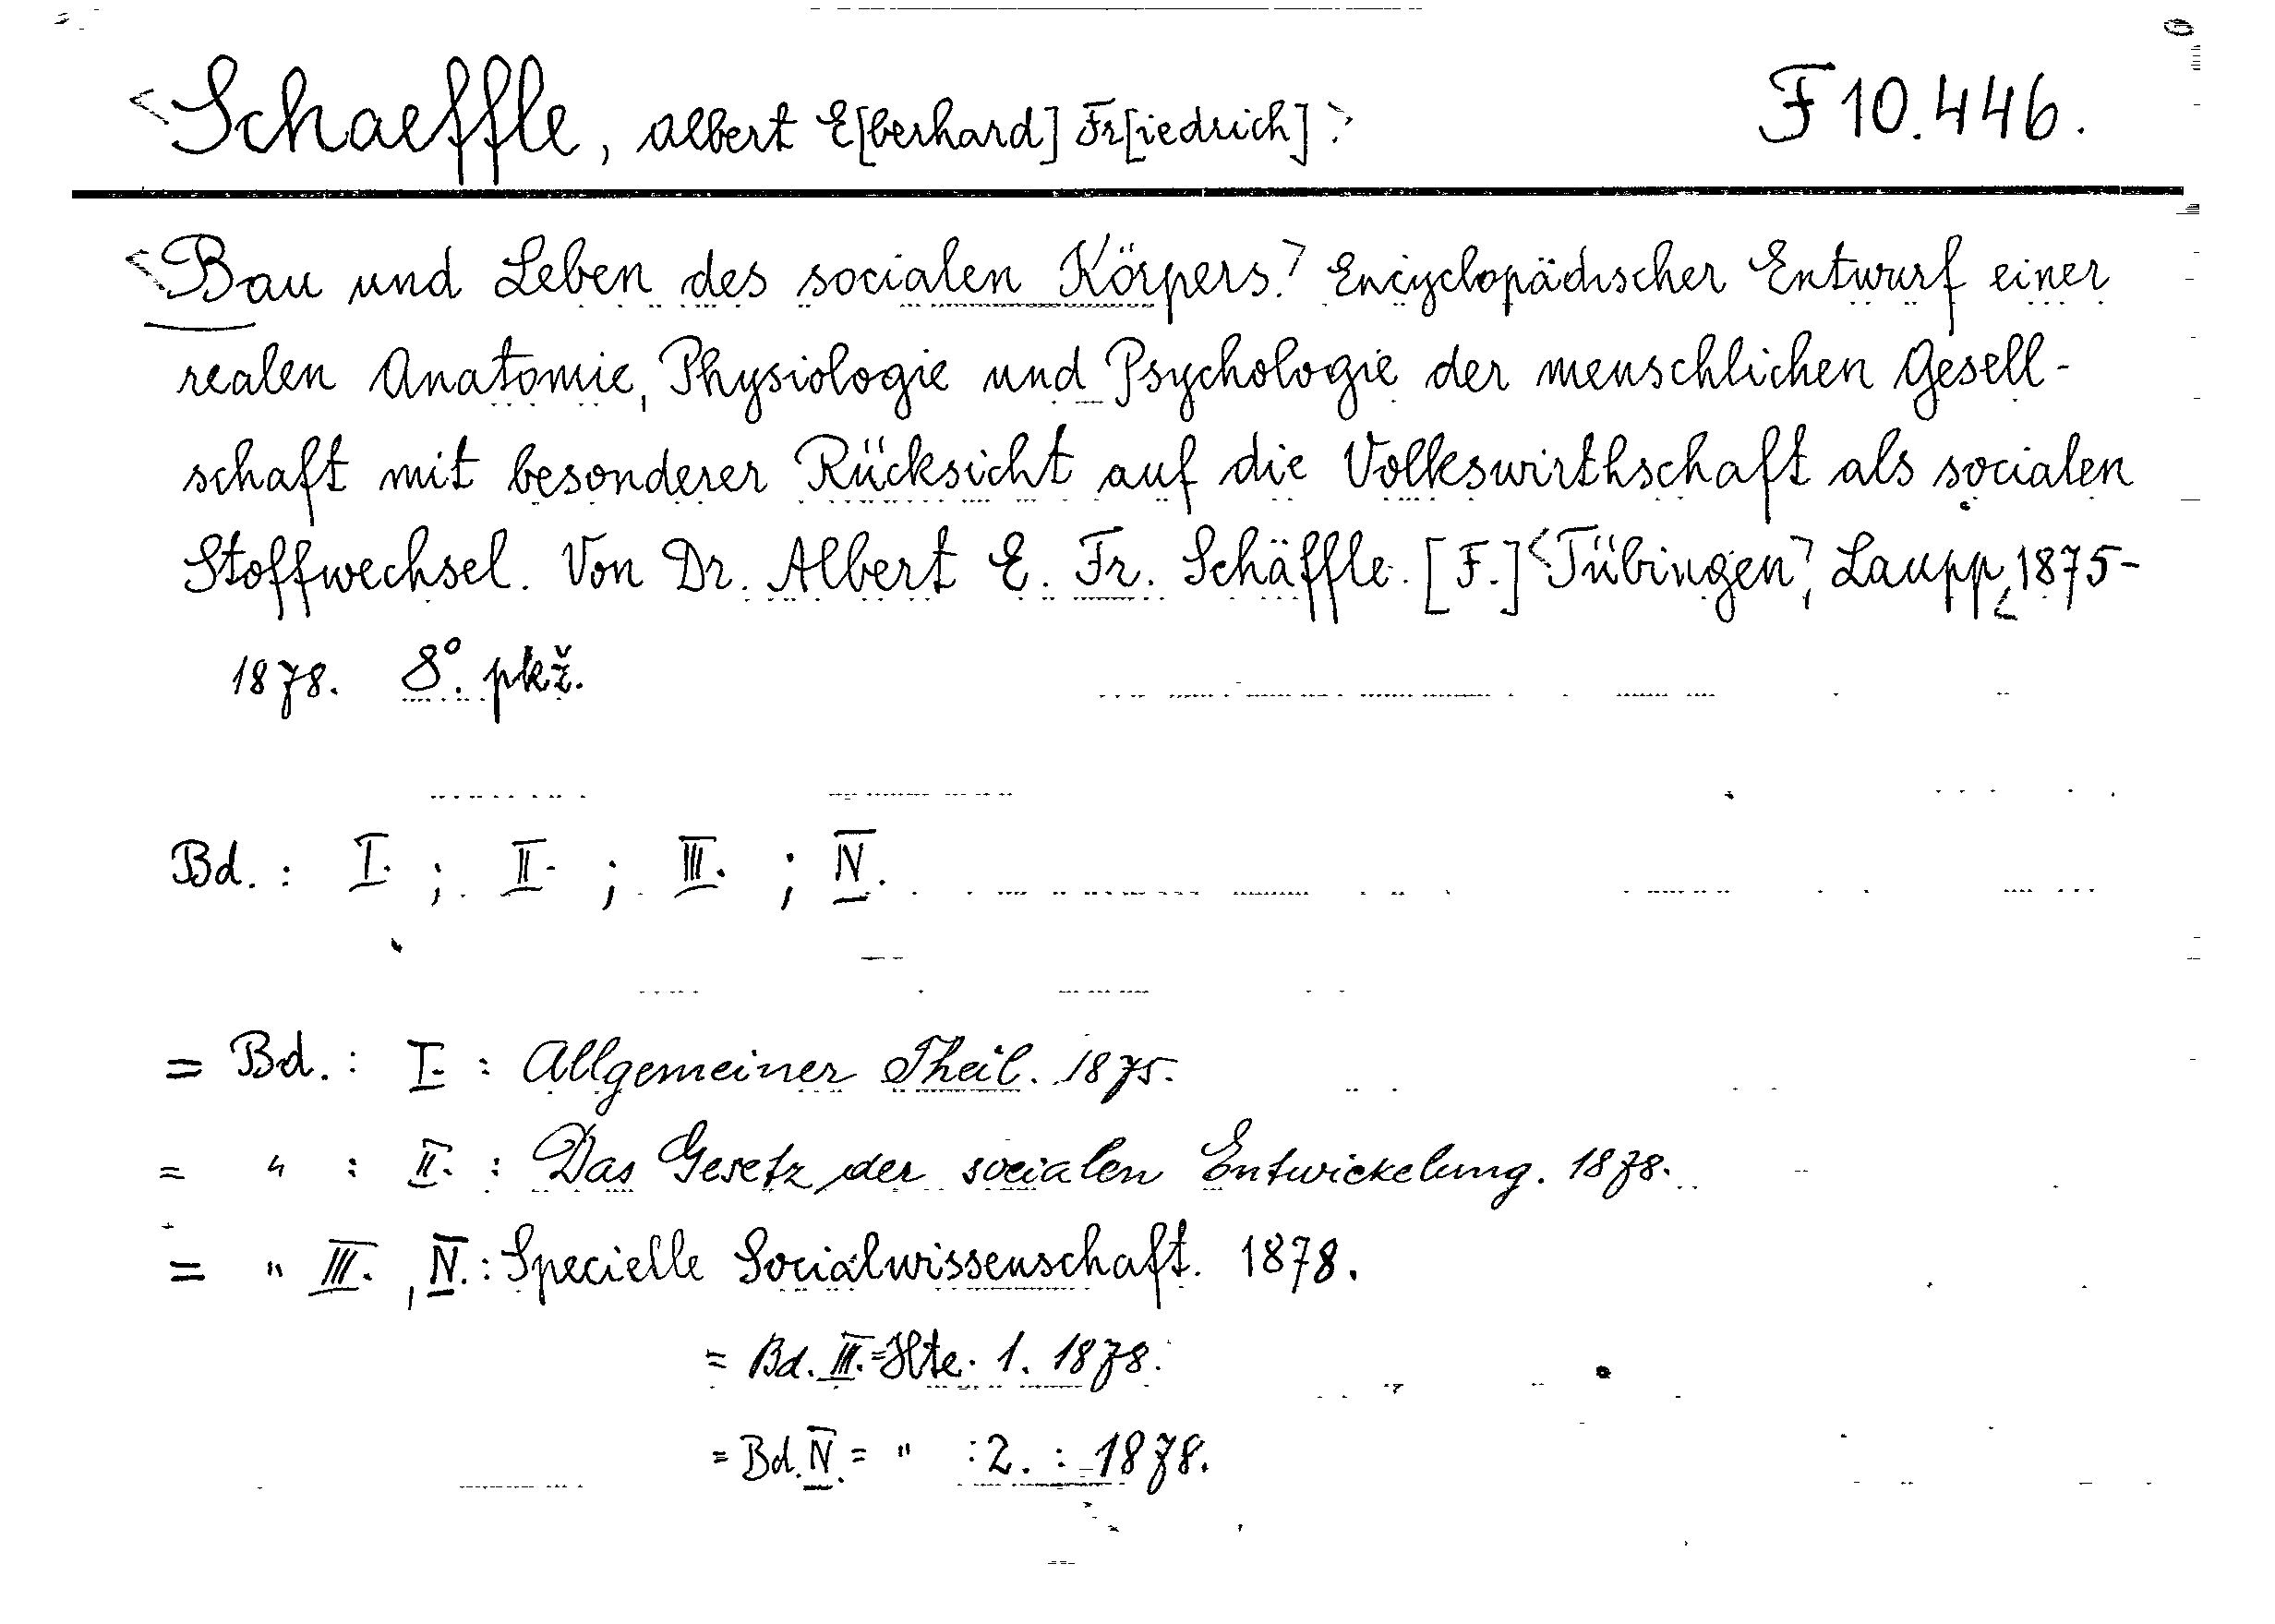 <Schaeffle, Albert E[berhard] Fr[iedrich].> F 10.446.
<Bau und Leben des socialen Körpers.> Encyclopädischer Entwurf einer
realen Anatomie, Physiologie und Psychologie der menschlichen Gesell-
schaft mit besonderer Rücksicht auf die Volkswirthschaft als socialen
Stoffwechsel. Von Dr. Albert E. Fr. Schäffle. [F.] <Tübingen>, Laupp, <1875-
1878. 8°. pkž.
Bd.: I. ; II. ; III. ; IV.
= Bd.: I. : Allgemeiner Theil. 1875.
= " : II. : Das Gesetz der socialen Entwickelung. 1878.
= " III. , IV. : Specielle Socialwissenschaft. 1878.
= Bd. III. = Hte. 1. 1878.
= Bd. IV. = " : 2. : 1878.